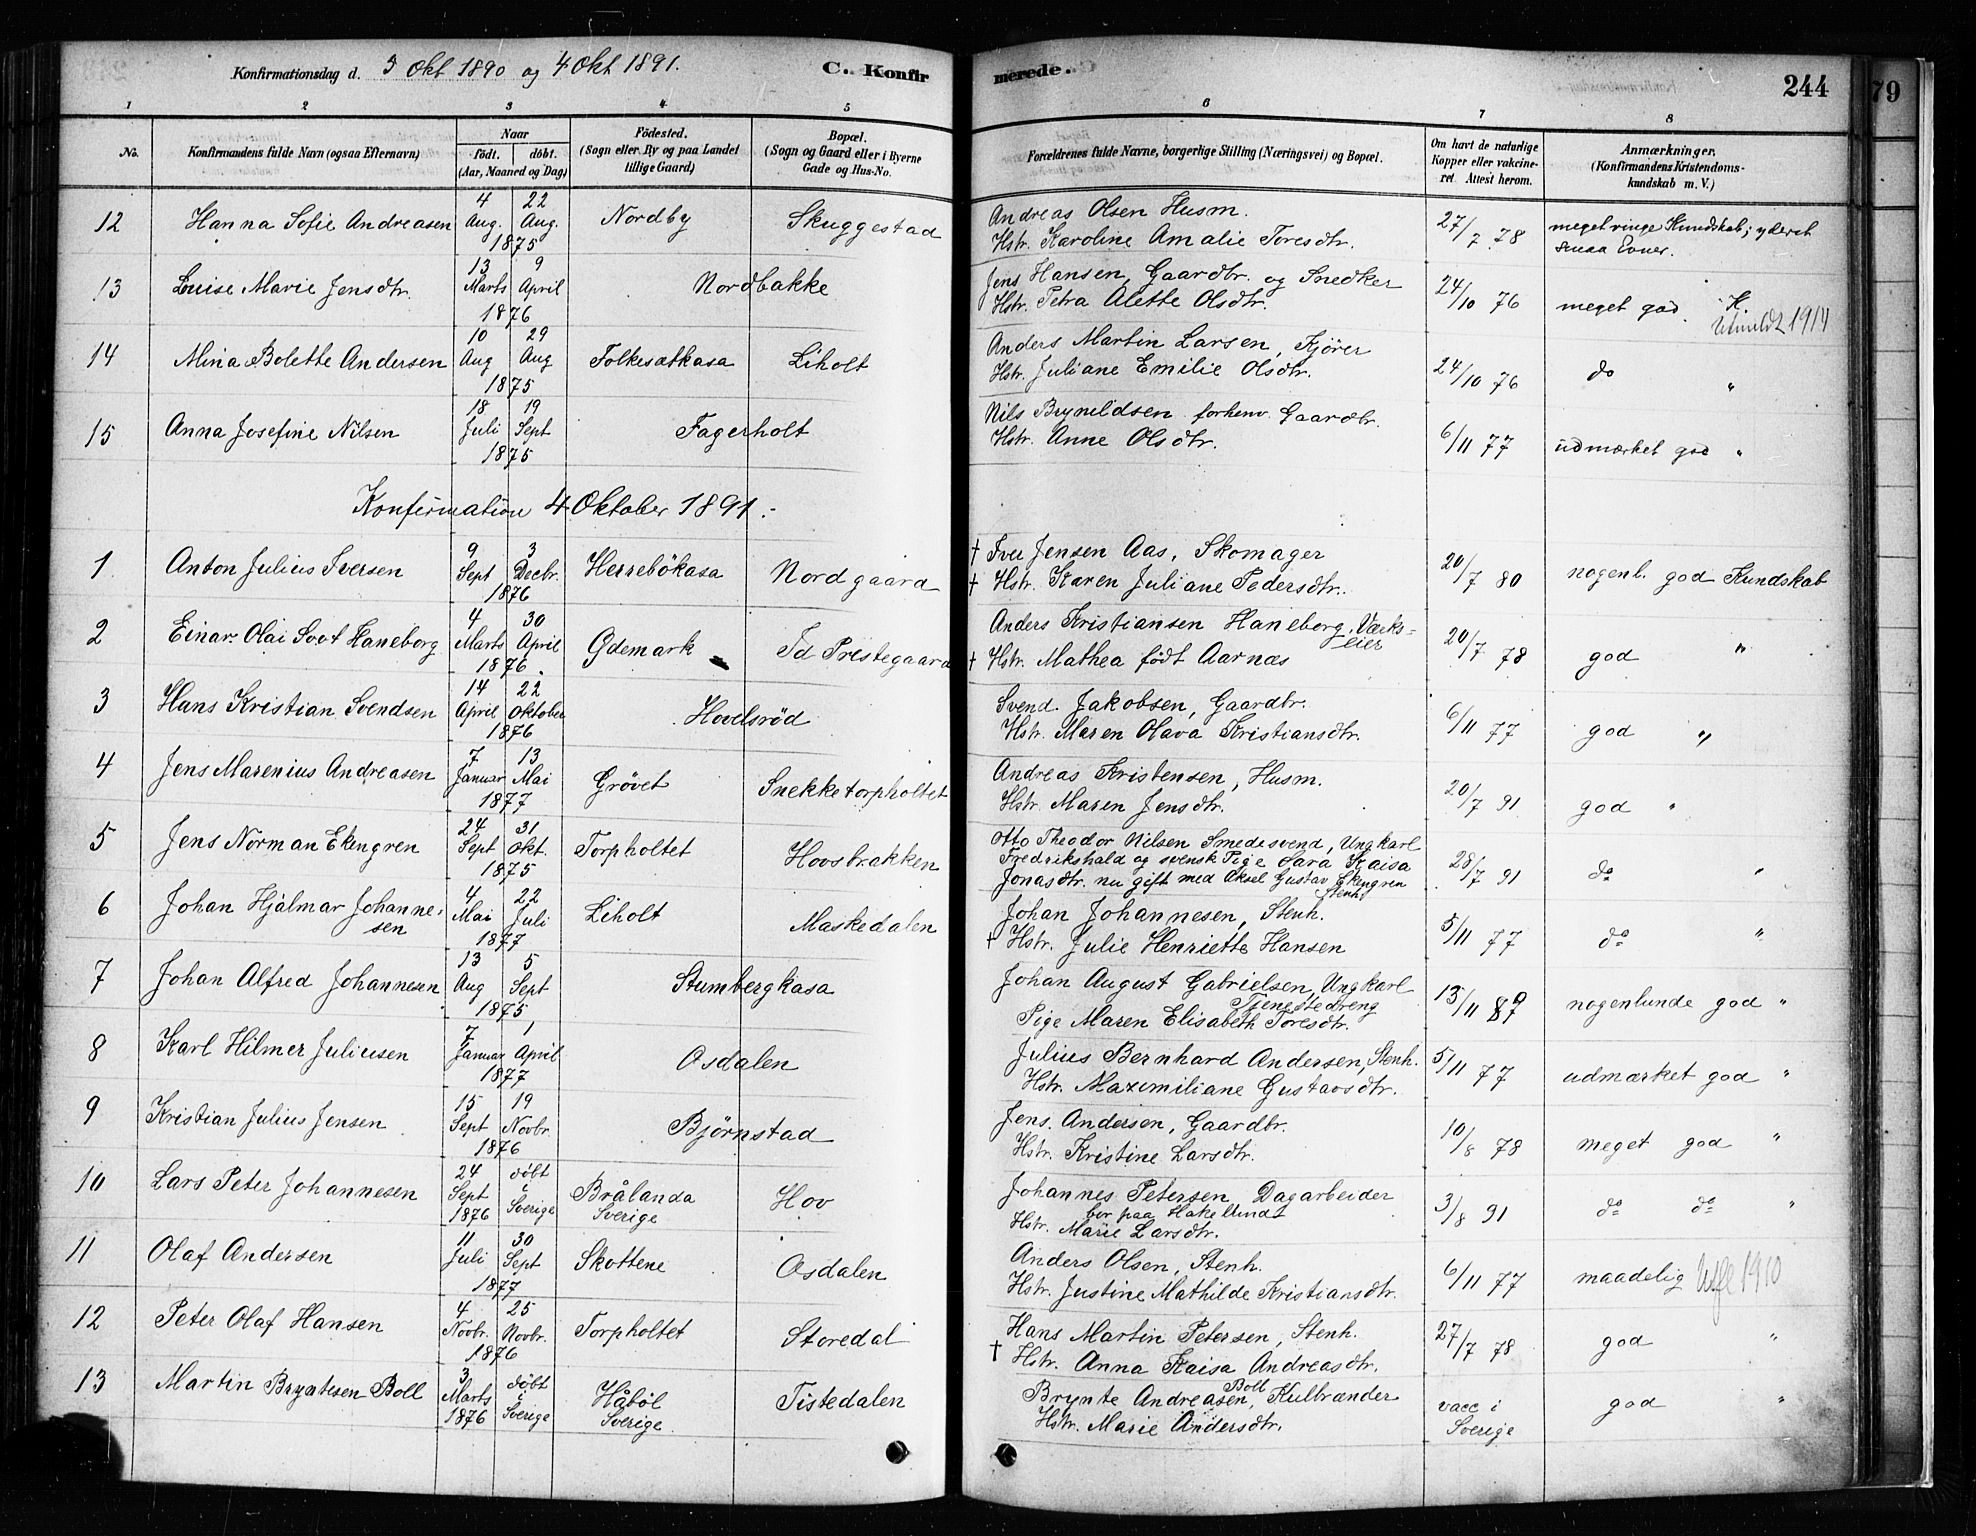 Konfirmationsdag d. 5 Okt 1890 og 4 Okt 1891.
C. Konfir
merede.
244
79
1 2 3 4 5 6 7 8
No.
Konfirmandens fulde Navn (ogsaa Efternavn)
Naar
født. døbt.
(Aar, Maaned og Dag)
Fødested.
(Sogn eller By og paa Landet
tillige Gaard)
Bopæl.
(Sogn og Gaard eller i Byerne
Gade og Hus-No.
Forældrenes fulde Navne, borgerlige Stilling (Næringsvei) og Bopæl.
Om havt de naturlige
Kopper eller vakcine-
ret Attest herom.
Anmærkninger,
(Konfirmandens Kristendoms-
kundskab m. V.)
12 Hanna Sofie Andreasen 4 Aug. 22 Aug. 1875 Nordby Skuggestad
Andreas Olsen Husm.
Hstr. Karoline Amalie Toresdtr. 27/7 78 meget ringe Kundskab; yderst
smaa Evner.
13 Louise Marie Jensdtr. 13 Marts 9 April 1876 Nordbakke
Jens Hansen, Gaardbr. og Snedker
Hstr. Petra Alette Olsdtr. 24/10 76 meget god K.
Utmeldt 1914
14 Mina Bolette Andersen 10 Aug 29 Aug 1875 Folkesatkasa Liholt
Anders Martin Larsen, Kjører
Hstr. Juliane Emilie Olsdtr. 24/10 76 do "
15 Anna Josefine Nilsen 18 Juli 19 Sept 1875 Fagerholt
Nils Brynildsen forhenv. Gaardbr.
Hstr. Anne Olsdtr. 6/11 77 udmærket god "
Konfirmation 4 Oktober 1891.-
1 Anton Julius Iversen 9 Sept 3 Decbr. 1876 Herrebökasa Nordgaard
† Iver Jensen Aas, Skomager
† Hstr. Karen Juliane Pedersdtr. 20/7 80 nogenl. god Kundskab
2 Einar Olai Soot Haneborg 4 Marts 30 April 1876 Ødemark Id Prestegaard
Anders Kristiansen Haneborg, Værks-
eier
† Hstr. Mathea født Aarnæs 20/7 78 god "
3 Hans Kristian Svendsen 14 April 22 Oktober 1876 Hovelsrød
Svend Jakobsen, Gaardbr.
Hstr. Maren Olava Kristiansdtr. 6/11 77 god "
4 Jens Marenius Andreasen 7 Januar 13 Mai 1877 Grøvet Snekketorpholtet
Andreas Kristensen, Husm.
Hstr. Maren Jensdtr. 20/7 91 god "
5 Jens Norman Ekengren 24 Sept 31 Okt. 1875 Torpholtet Hovsbrakken
Otto Theodor Nilsen Smedesvend, Ungkarl
Fredrikshald og svensk Pige Sara Kaisa
Jonasdtr. nu gift med Aksel Gustav Ekengren
Stenh. 28/7 91 do "
6 Johan Hjalmar Johanne-
sen 4 Mai 22 Juli 1877 Liholt Maskedalen
Johan Johannesen, Stenh.
† Hstr. Julie Henriette Hansen 5/11 77 do "
7 Johan Alfred Johannesen 13 Aug 5 Sept 1875 Stumbergkasa
Johan August Gabrielsen, Ungkarl
Tjenestedreng
Pige Maren Elisabeth Toresdtr. 13/11 87 nogenlunde god "
8 Karl Hilmer Juliusen 7 Januar 1 April 1877 Osdalen
Julius Bernhard Andersen, Stenh.
Hstr. Maximiliane Gustavsdtr. 5/11 77 udmærket god "
9 Kristian Julius Jensen 15 Sept 19 Novbr. 1876 Bjørnstad
Jens Andersen, Gaardbr.
Hstr. Kristine Larsdtr. 10/8 78 meget god "
10 Lars Peter Johannesen 24 Sept 1876 døbt i Sverige Brålanda
Sverige Hov
Johannes Petersen, Dagarbeider
bor paa Hakelund
Hstr. Marie Larsdtr. 3/8 91 do do "
11 Olaf Andersen 11 Juli 30 Sept 1877 Skottene Osdalen
Anders Olsen, Stenh.
Hstr. Justine Mathilde Kristiansdtr. 6/11 77 maadelig Utfl 1910
12 Peter Olaf Hansen 4 Novbr. 25 Novbr. 1876 Torpholtet Storedal
Hans Martin Petersen, Stenh.
† Hstr. Anna Kaisa Andreasdtr. 27/7 78 god "
13 Martin Bryntesen Boll 3 Marts 1876 døbt i Sverige Håböl
Sverige Tistedalen
Brynte Andreasen Boll, Kulbrænder
Hstr. Marie Andersdtr. vacc i
Sverige god "